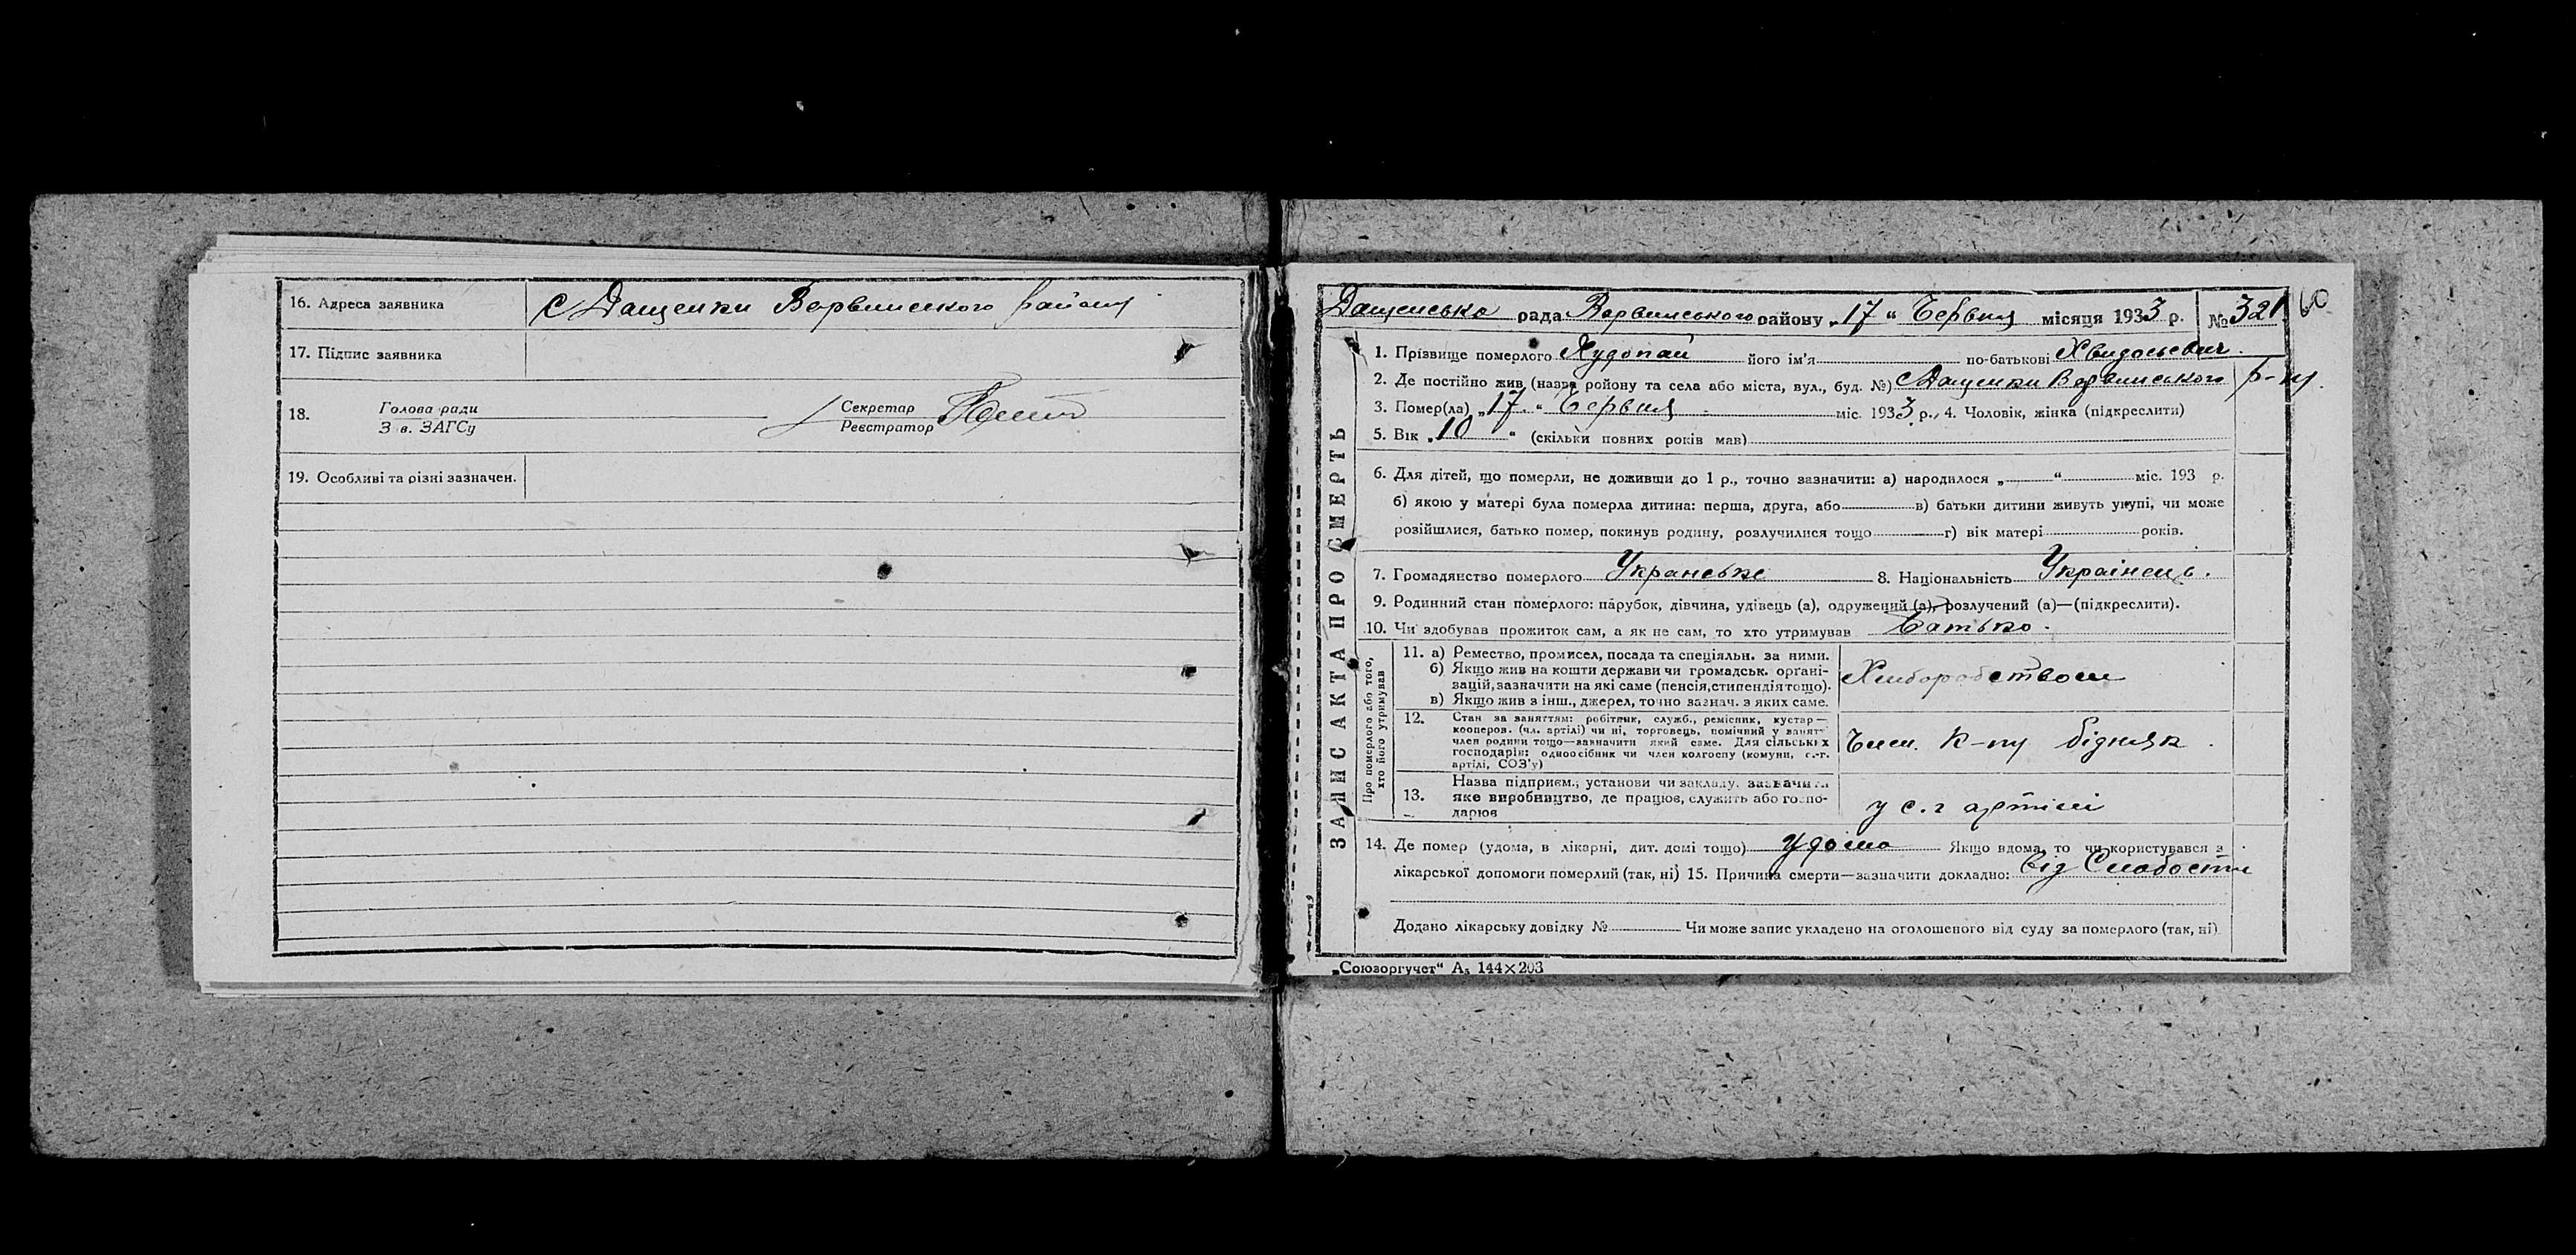 16. Адреса заявника с Дащенки Варвинського району
17. Підпис заявника
18. Голова ради Секретар
З в. ЗАГСу Реєстратор
19. Особливі та різні зазначен.
Дащенська рада Варвинського району „17“ Червня місяця 1933 р. № 321 60
1. Прізвище померлого Худопай його ім'я по-батькові Хвидосьевич.
2. Де постійно жив (назва ройону та села або міста, вул., буд. №) с Дащенки Варвинського р-ну.
3. Помер(ла) „17.“ Червня міс. 1933 р., 4. Чоловік, жінка (підкреслити)
5. Вік „10“ (скільки повних років мав)
6. Для дітей, що померли, не доживши до 1 р., точно зазначити: а) народилося „ “ міс. 193 р.
б) якою у матері була померла дитина: перша, друга, або в) батьки дитини живуть укупі, чи може
розійшлися, батько помер, покинув родину, розлучилися тощо г) вік матері років.
7. Громадянство померлого Українське 8. Національність Українець.
9. Родинний стан померлого: парубок, дівчина, удівець (а), одружений (а), розлучений (а)—(підкреслити).
10. Чи здобував прожиток сам, а як не сам, то хто утримував батько.
ЗАПИС АКТА ПРО СМЕРТЬ
Про померлого або того,
хто його утримував
11. а) Ремество, промисел, посада та спеціяльн. за ними.
б) Якщо жив на кошти держави чи громадськ. органі-
зацій, зазначити на які саме (пенсія, стипендія тощо).
в) Якщо жив з інш., джерел, точно зазнач. з яких саме.
Хліборобством
12. Стан за заняттям: робітник, служб., ремісник, кустар—
кооперов. (чл. артілі) чи ні, торговець, помічний у занятт
член родини тощо—зазначити який саме. Для сільських
господарів: одноосібник чи член колгоспу (комуни, с.-г.
артілі, СОЗ'у)
Член. К-пу бідняк.
13. Назва підприєм., установи чи закладу, зазначити
яке виробництво, де працює, служить або госпо-
дарює
у с.г артілі
14. Де помер (удома, в лікарні, дит. домі тощо) удома Якщо вдома, то чи користувався з
лікарської допомоги померлий (так, ні) 15. Причина смерти—зазначити докладно: від Слабости
Додано лікарську довідку № Чи може запис укладено на оголошеного від суду за померлого (так, ні)
„Союзоргучет“ А5 144×203